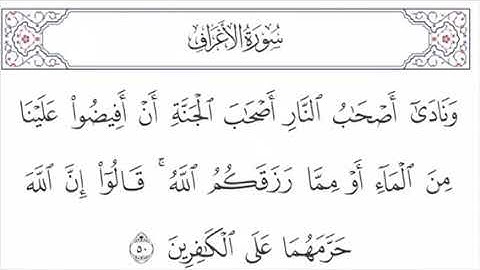 سُورَةُ الأَعْرَافِ
وَنَادَىٰٓ أَصْحَٰبُ ٱلنَّارِ أَصْحَٰبَ ٱلْجَنَّةِ أَنْ أَفِيضُوا۟ عَلَيْنَا
مِنَ ٱلْمَآءِ أَوْ مِمَّا رَزَقَكُمُ ٱللَّهُ ۚ قَالُوٓا۟ إِنَّ ٱللَّهَ
حَرَّمَهُمَا عَلَى ٱلْكَٰفِرِينَ ٥٠